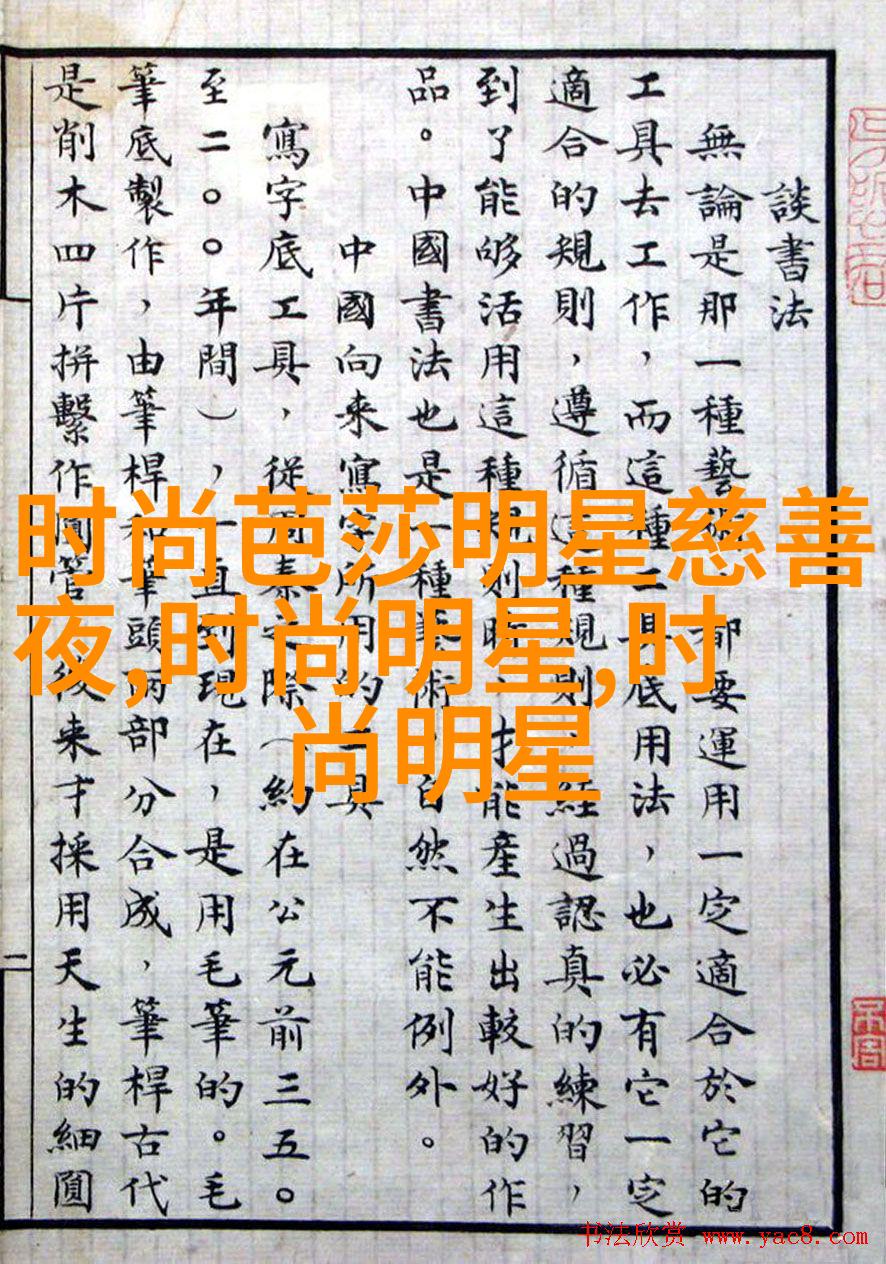 談書法
無論是那一種藝術,都要運用一定適合於它的
工具去工作,而這種工具底用法,也必有它一定
適合的規則,遵循這種規則,經過認真的練習,
到了能够活用這種規則時,才能產生出較好的作
品。中國書法也是一種藝術,自然不能例外。
中國向來寫字所用的工具
寫字底工具,從周秦之際(約在公元前三五〇
至二〇〇年間),一直到現在,是用毛筆的。毛
筆底製作,由筆桿和筆頭兩部分合成,筆桿古代
是削木四片拼繫作圓管,後來才採用天生的細圓
二
时尚芭莎明星慈善
夜,时尚明星,时
尚明星
书法欣赏 www.yac8.com